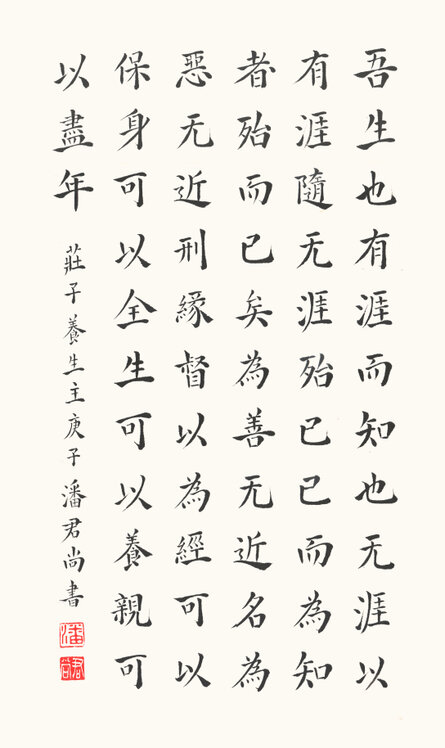 吾生也有涯而知也无涯以
有涯隨无涯殆已已而為知
者殆而已矣為善无近名為
惡无近刑緣督以為經可以
保身可以全生可以養親可
以盡年
莊子養生主庚子潘君尚書
潘
君尚